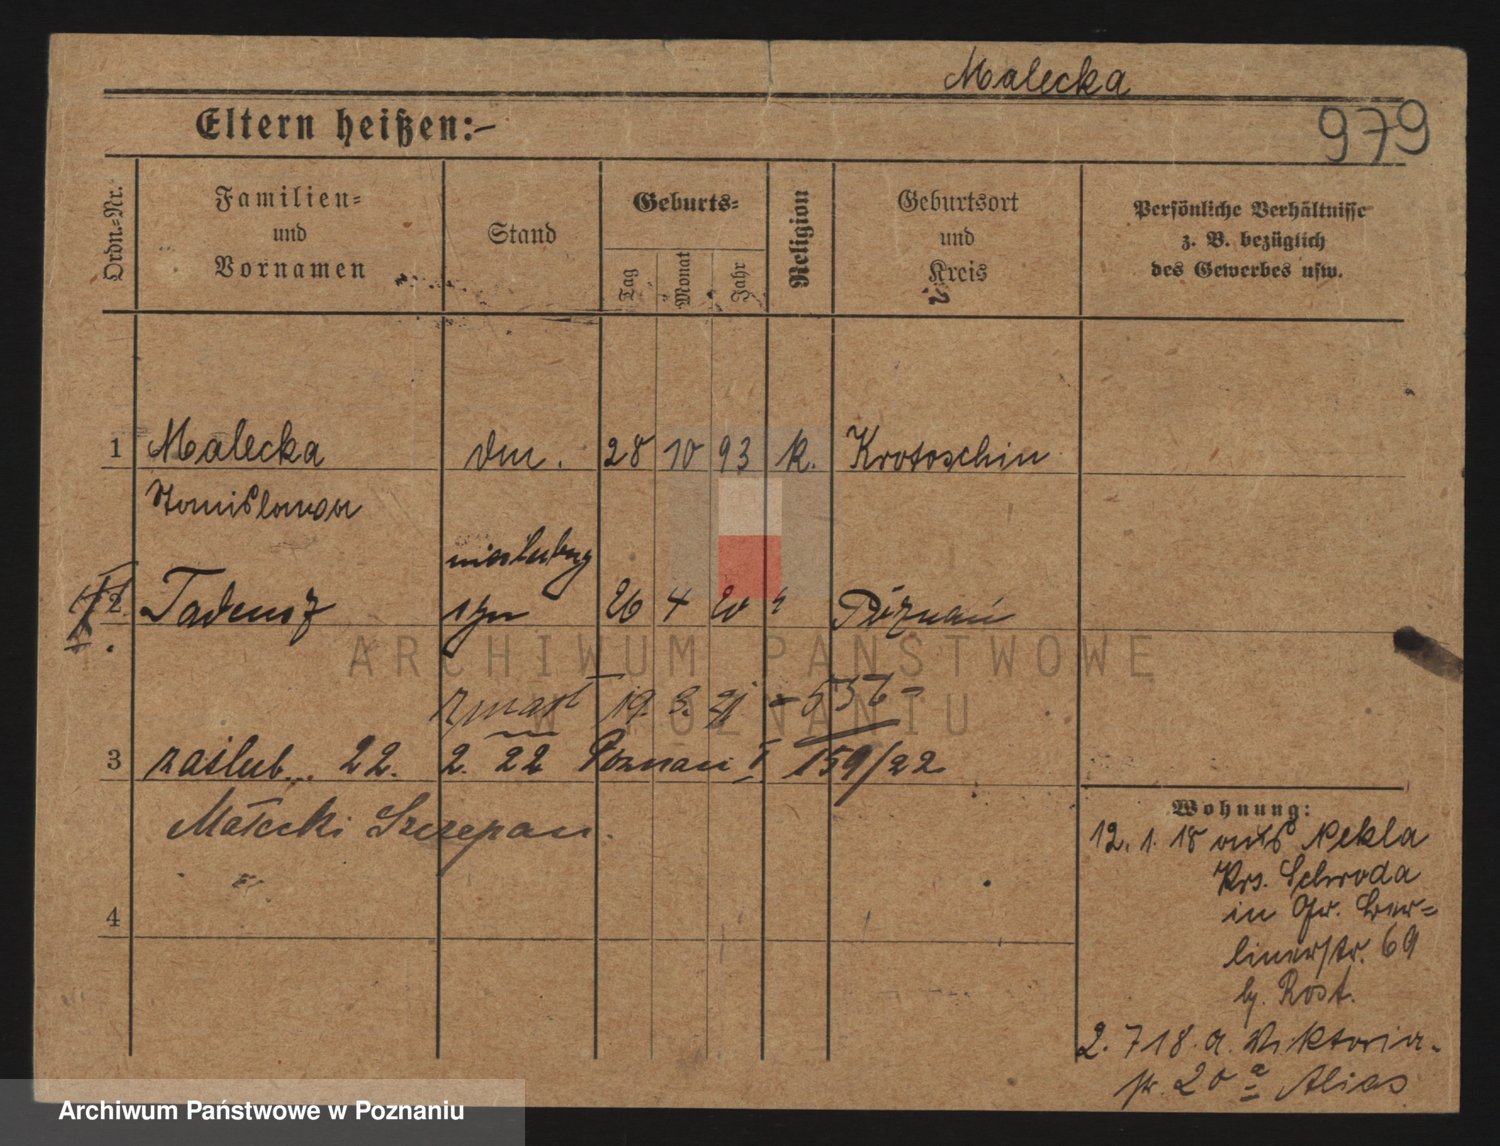 Malecka
979
Eltern heißen:-
Ordn.-Nr.
Familien-
und
Vornamen
Stand
Geburts-
Tag
Monat
Jahr
Religion
Geburtsort
und
Kreis
Persönliche Verhältnisse
z. B. bezüglich
des Gewerbes usw.
1 Malecka 28 10 93 k. Krotoschin
Stanislawa
nieslubny
2 Tadeusz syn 26 4 20 Poznań
zmarł 19. 3. 21 - 536 -
3 zaślub. 22. 2. 22 Poznań I 159/22
Małecki Szczepan.
4
Wohnung:
12. 1. 18 aus Nekla
Krs. Schroda
in Gr. Ber-
linerstr. 69
b. Rost.
2. 7 18. a. Viktoria-
str. 20 a Alias
ARCHIWUM PAŃSTWOWE
W POZNANIU
Archiwum Państwowe w Poznaniu